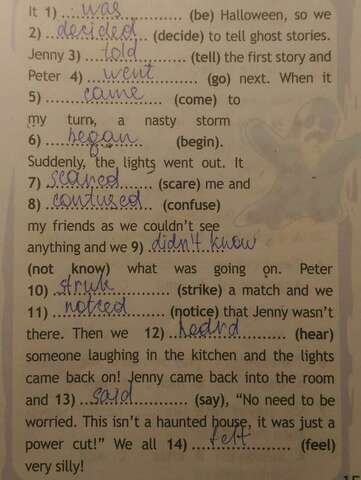 It 1) was (be) Halloween, so we
2) decided (decide) to tell ghost stories.
Jenny 3) told (tell) the first story and
Peter 4) went (go) next. When it
5) came (come) to
my turn, a nasty storm
6) began (begin).
Suddenly, the lights went out. It
7) scared (scare) me and
8) confused (confuse)
my friends as we couldn't see
anything and we 9) didn't know
(not know) what was going on. Peter
10) struk (strike) a match and we
11) noticed (notice) that Jenny wasn't
there. Then we 12) heard (hear)
someone laughing in the kitchen and the lights
came back on! Jenny came back into the room
and 13) said (say), "No need to be
worried. This isn't a haunted house, it was just a
power cut!" We all 14) felt (feel)
very silly!